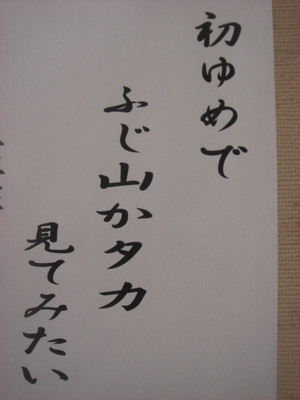 初ゆめで
ふじ山かタカ
見てみたい